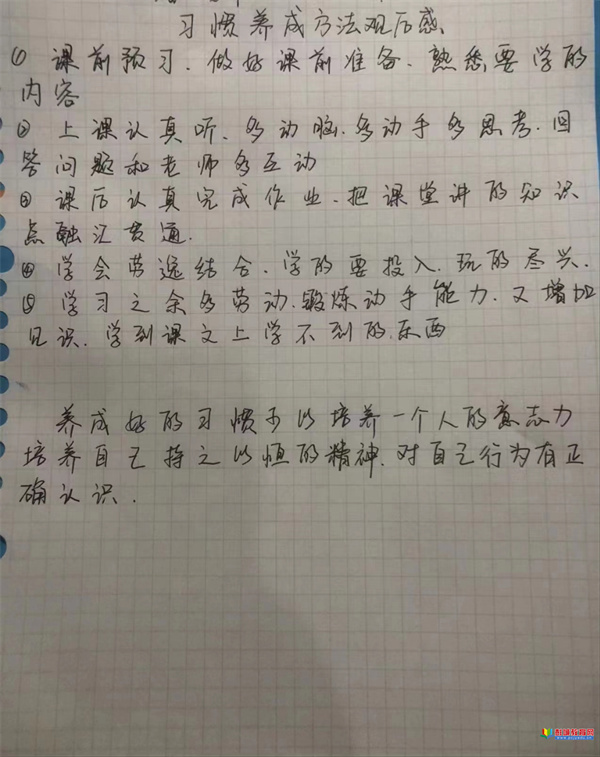 习惯养成方法观后感
① 课前预习、做好课前准备、熟悉要学的
内容
② 上课认真听、多动脑、多动手多思考、回
答问题和老师多互动
③ 课后认真完成作业、把课堂讲的知识
点融汇贯通.
④ 学会劳逸结合、学的要投入、玩的尽兴.
⑤ 学习之余多劳动、锻炼动手能力、又增加
见识、学到课文上学不到的东西
养成好的习惯可以培养一个人的意志力
培养自己持之以恒的精神、对自己行为有正
确认识.